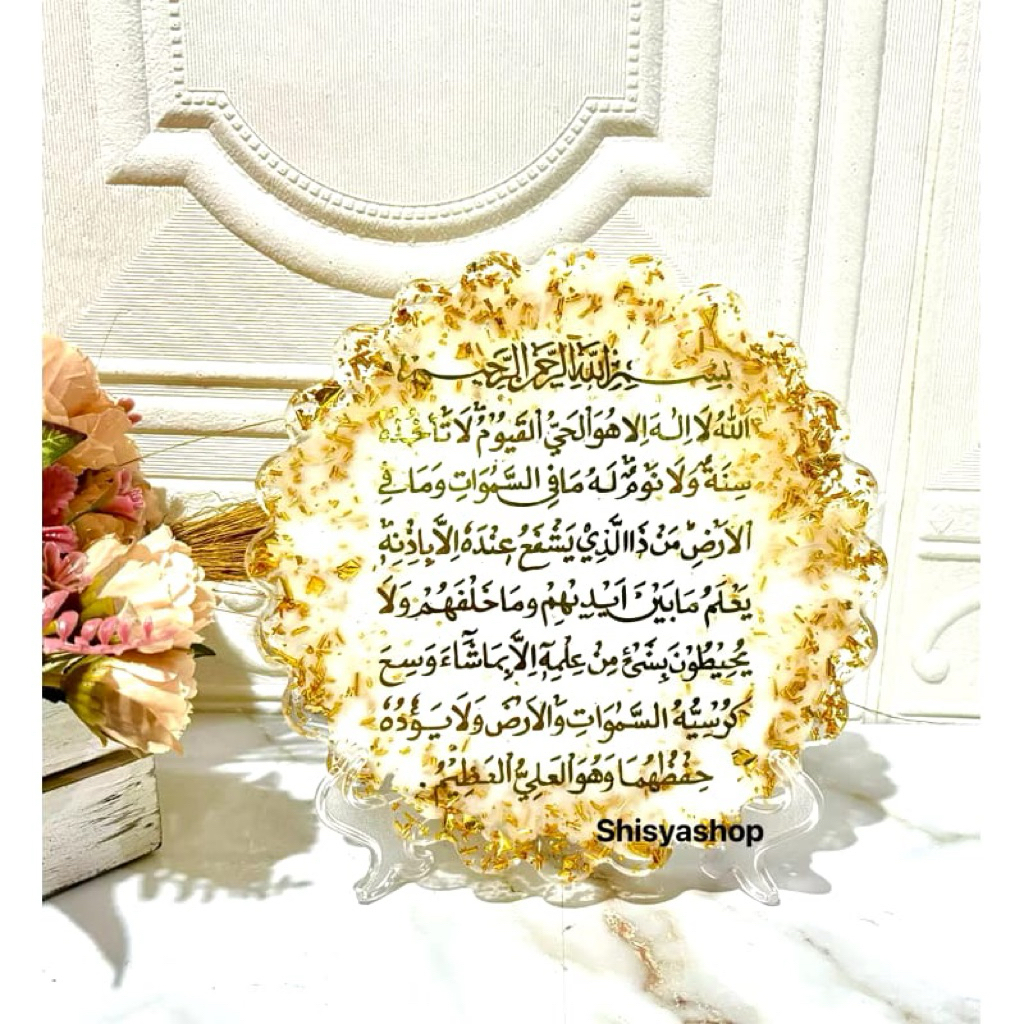 بِسْمِ اللَّهِ الرَّحْمَٰنِ الرَّحِيمِ
اَللّٰهُ لَا اِلٰهَ اِلَّا هُوَ الْحَيُّ الْقَيُّوْمُ لَا تَأْخُذُهُ
سِنَةٌ وَلَا نَوْمٌ لَهُ مَا فِي السَّمٰوَاتِ وَمَا فِي
الْاَرْضِ مَنْ ذَا الَّذِيْ يَشْفَعُ عِنْدَهُ اِلَّا بِاِذْنِهٖ
يَعْلَمُ مَا بَيْنَ اَيْدِيْهِمْ وَمَا خَلْفَهُمْ وَلَا
يُحِيْطُوْنَ بِشَيْءٍ مِنْ عِلْمِهٖٓ اِلَّا بِمَا شَآءَ وَسِعَ
كُرْسِيُّهُ السَّمٰوَاتِ وَالْاَرْضَ وَلَا يَؤُدُهُ
حِفْظُهُمَا وَهُوَ الْعَلِيُّ الْعَظِيْمُ.
Shisyashop